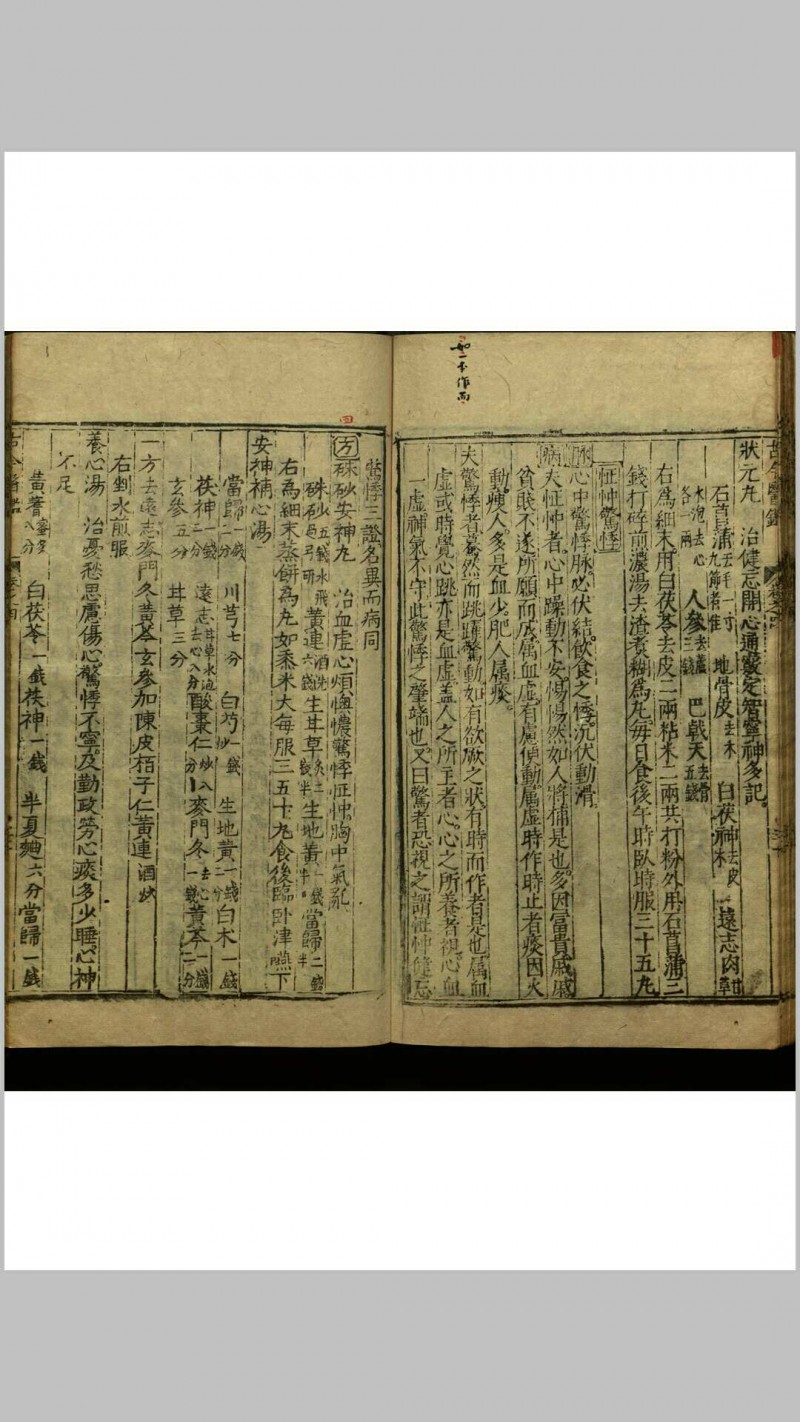 如一本作而
狀元丸 治健忘開心通竅定智寧神多記
石菖蒲去毛一寸九節者佳 地骨皮去木 白茯神去皮木 遠志肉甘草
水泡去心各一兩 人參去蘆三錢 巴戟天去骨五錢
右爲細末用白茯苓去皮二兩粘米二兩共打粉外用石菖蒲三
錢打碎煎濃湯去渣煮糊爲丸每日食後午時臥時服三十五丸
怔忡驚悸
脉心中驚悸脉必伏結飲食之悸沉伏動滑
病夫怔忡者心中躁動不安惕惕然如人將捕是也多因富貴戚戚
貧賤不遂所願而成屬血虛有慮便動屬虛時作時止者痰因火
動瘦人多是血少肥人屬痰
夫驚悸者驀然而跳躍驚動如有欲厥之狀有時而作者是也屬血
虛或時覺心跳亦是血虛蓋人之所主者心心之所養者血心血
一虛神氣不守此驚悸之肇端也又曰驚者恐視之謂怔忡健忘
驚悸三證名異而病同
四
方 硃砂安神丸 治血虛心煩懊憹驚悸怔忡胸中氣亂
硃砂五錢水飛另研 黃連酒洗六錢 生甘草二錢半 生地黃一錢半 當歸二錢半
右爲細末蒸餅爲丸如黍米大每服三五十丸食後臨卧津嚥下
安神補心湯
當歸一錢二分 川芎七分 白芍炒一錢 生地黃一錢二分 白术一錢
茯神一錢二分 遠志甘草水泡去心八分 酸棗仁炒八分 麥門冬去心一錢 黃芩一錢二分
玄參五分 甘草三分
一方去遠志麥門冬黃芩玄參加陳皮栢子仁黃連酒炒
右剉水煎服
養心湯 治憂愁思慮傷心驚悸不寧及勤政勞心痰多少睡心神
不足
黃耆蜜炙八分 白茯苓一錢 茯神一錢 半夏麯六分 當歸一錢